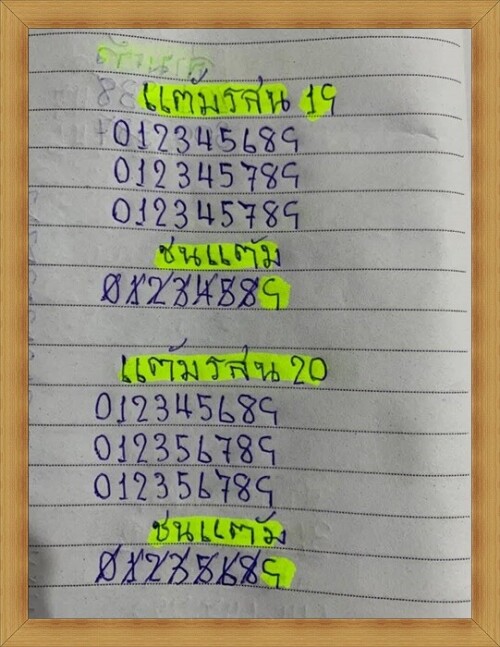 แต้มรสน 19
012345689
012345789
012345789
ชนแต้ม
01234589
แต้มรสน 20
012345689
012356789
012356789
ชนแต้ม
01235689